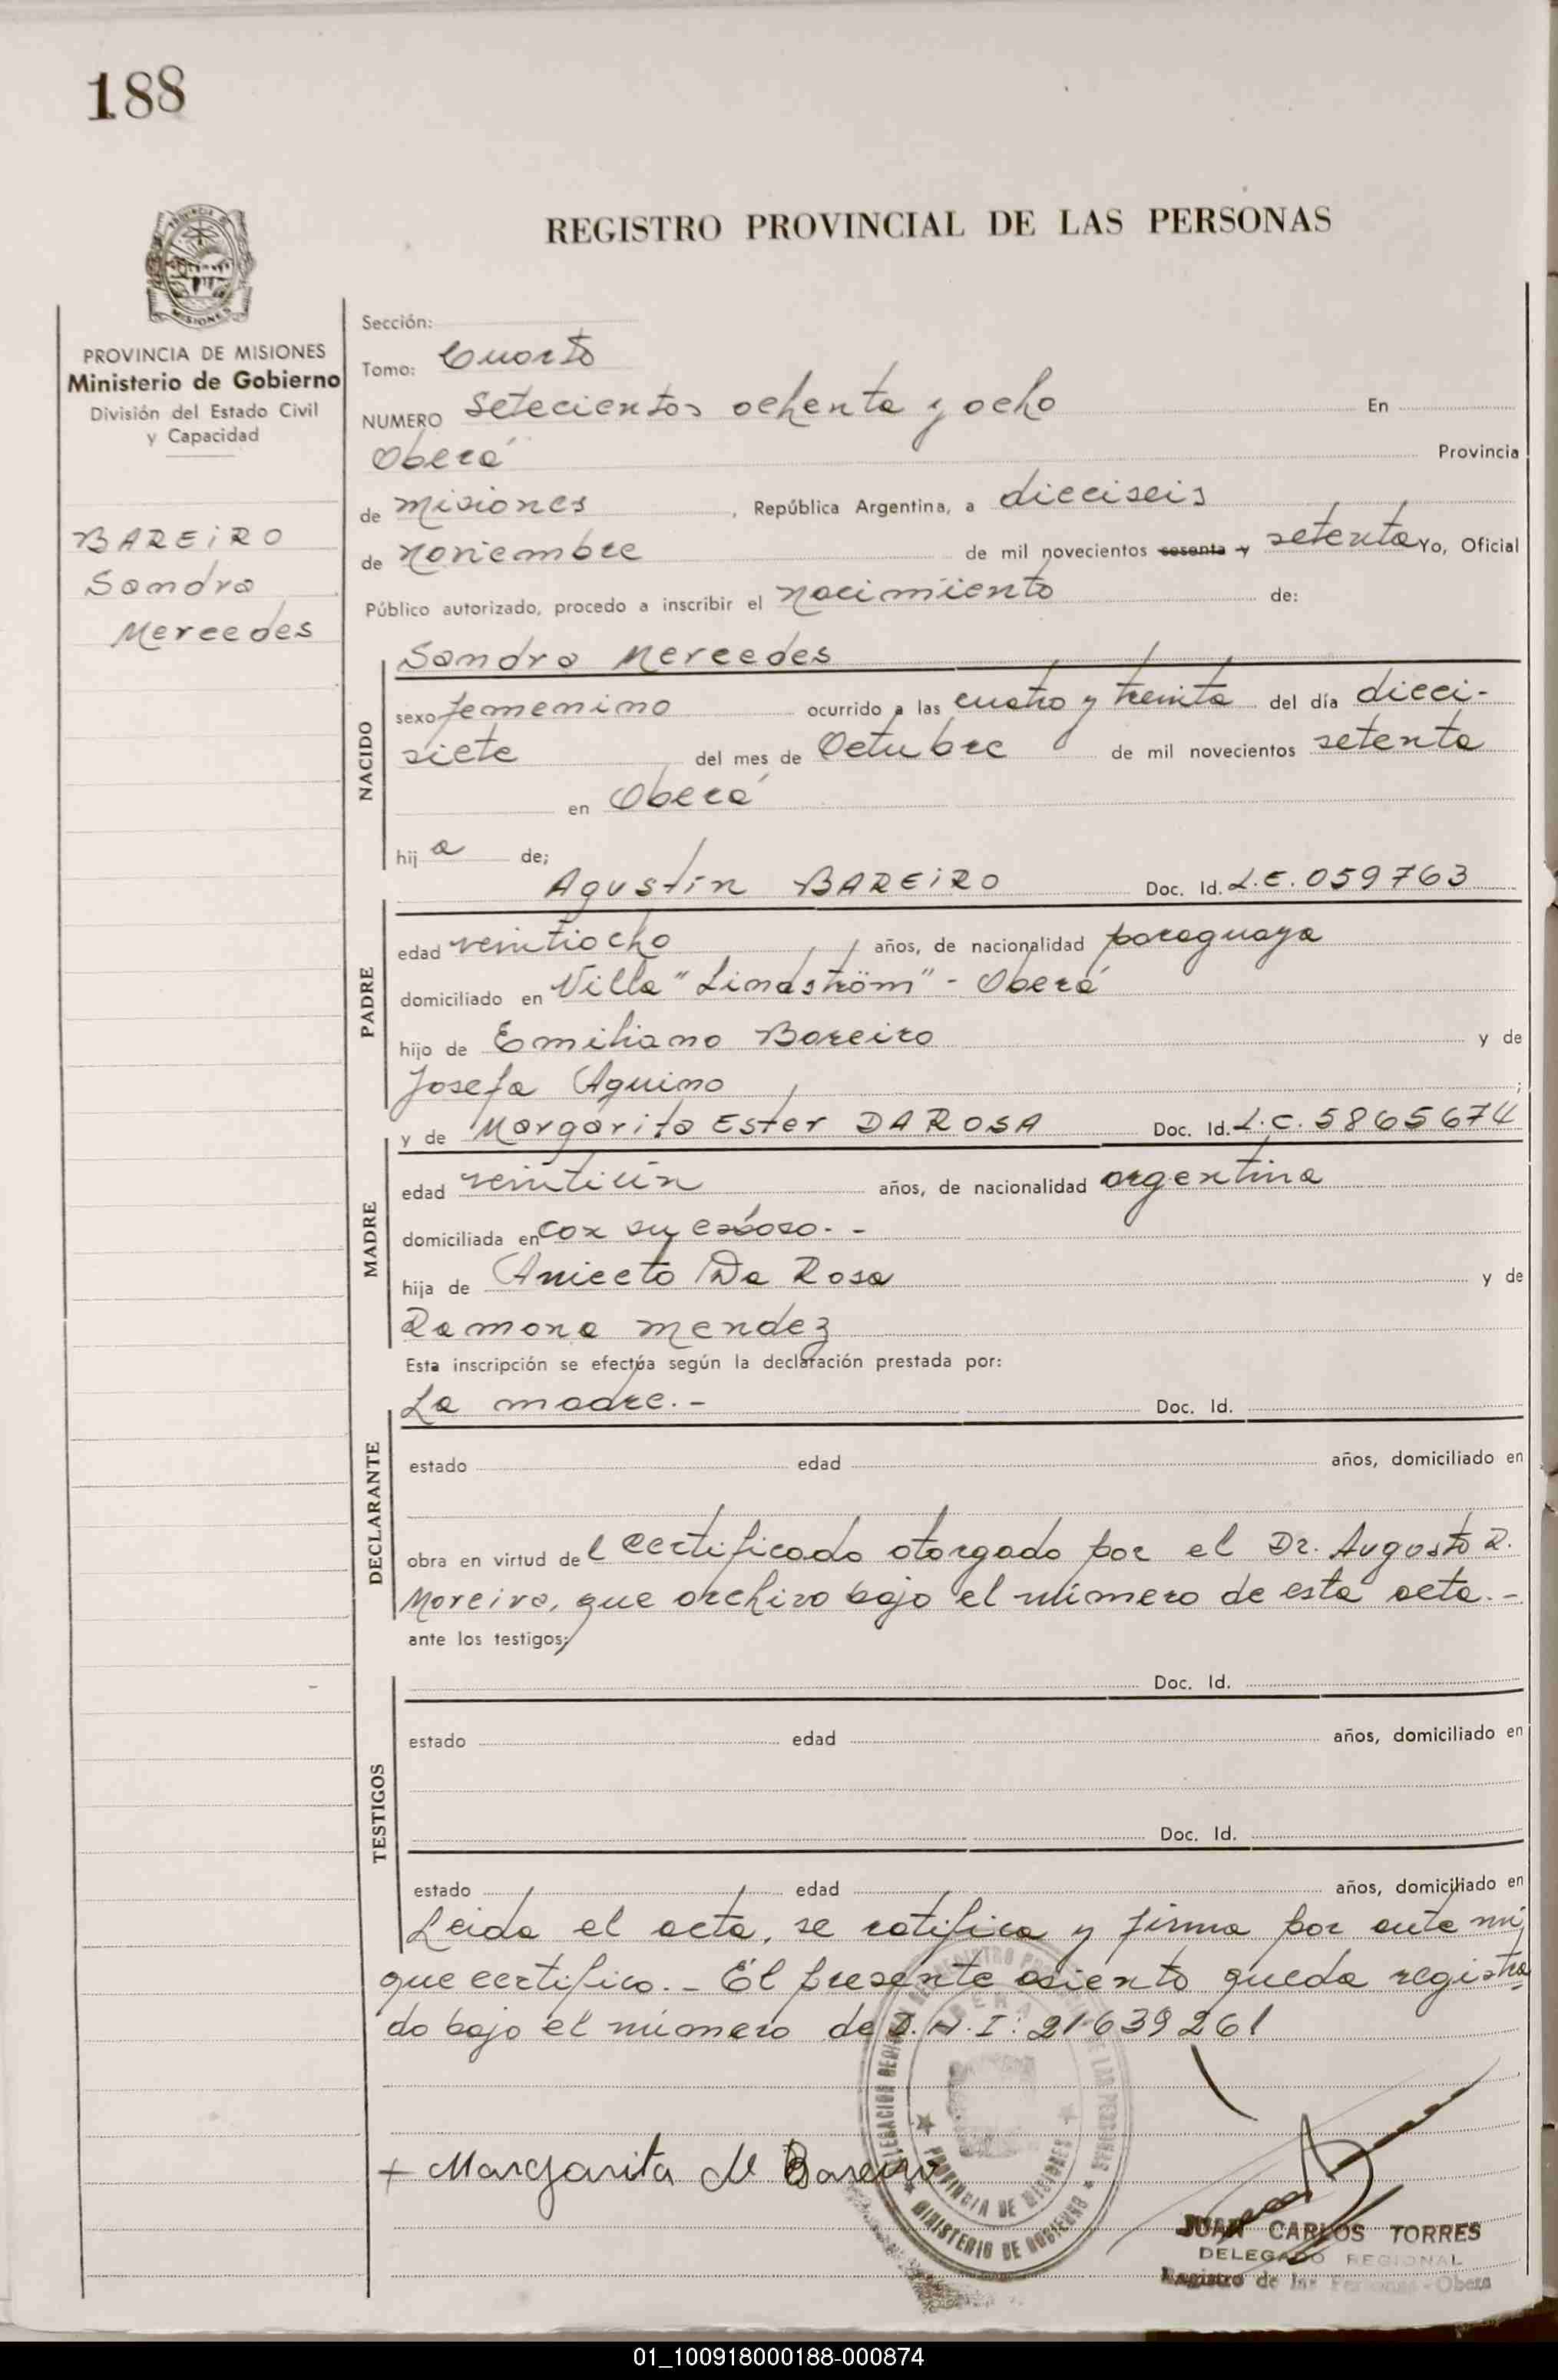 188
PROVINCIA DE MISIONES
REGISTRO PROVINCIAL DE LAS PERSONAS
PROVINCIA DE MISIONES
Ministerio de Gobierno
División del Estado Civil
y Capacidad
BAREIRO
Sandra
Mercedes
Sección:
Tomo: Cuarto
NUMERO Setecientos ochenta y ocho En
Oberá Provincia
de Misiones, República Argentina, a dieciseis
de noviembre de mil novecientos sesenta y setenta Yo, Oficial
Público autorizado, procedo a inscribir el nacimiento de:
Sandra Mercedes
NACIDO
sexo femenino ocurrido a las cuatro y treinta del día dieci-
siete del mes de Octubre de mil novecientos setenta
en Oberá
hij a de;
Agustín BAREIRO Doc. Id. L.E. 059763
PADRE
edad veintiocho años, de nacionalidad paraguaya
domiciliado en Villa "Lindström" - Oberá
hijo de Emiliano Bareiro y de
Josefa Aquino;
y de Margarita Ester DA ROSA Doc. Id. L.C. 5865674
MADRE
edad veintiún años, de nacionalidad argentina
domiciliada en con su esposo. -
hija de Aniceto Da Rosa y de
Ramona Mendez
Esta inscripción se efectúa según la declaración prestada por:
La madre.- Doc. Id.
DECLARANTE
estado edad años, domiciliado en
obra en virtud de l certificado otorgado por el Dr. Augusto R.
Moreira, que archivo bajo el número de esta acta.-
ante los testigos;
Doc. Id.
TESTIGOS
estado edad años, domiciliado en
Doc. Id.
estado edad años, domiciliado en
Leida el acta, se ratifica y firma por ante mí,
que certifico.- El presente asiento queda registra
do bajo el número de D.N.I: 21639261
DELEGACION REGIONAL DEL REGISTRO PROVINCIAL DE LAS PERSONAS
OBERA
PROVINCIA DE MISIONES
MINISTERIO DE GOBIERNO
+ Margarita de Bareiro
JUAN CARLOS TORRES
DELEGADO REGIONAL
Registro de las Personas - Obera
01_100918000188-000874